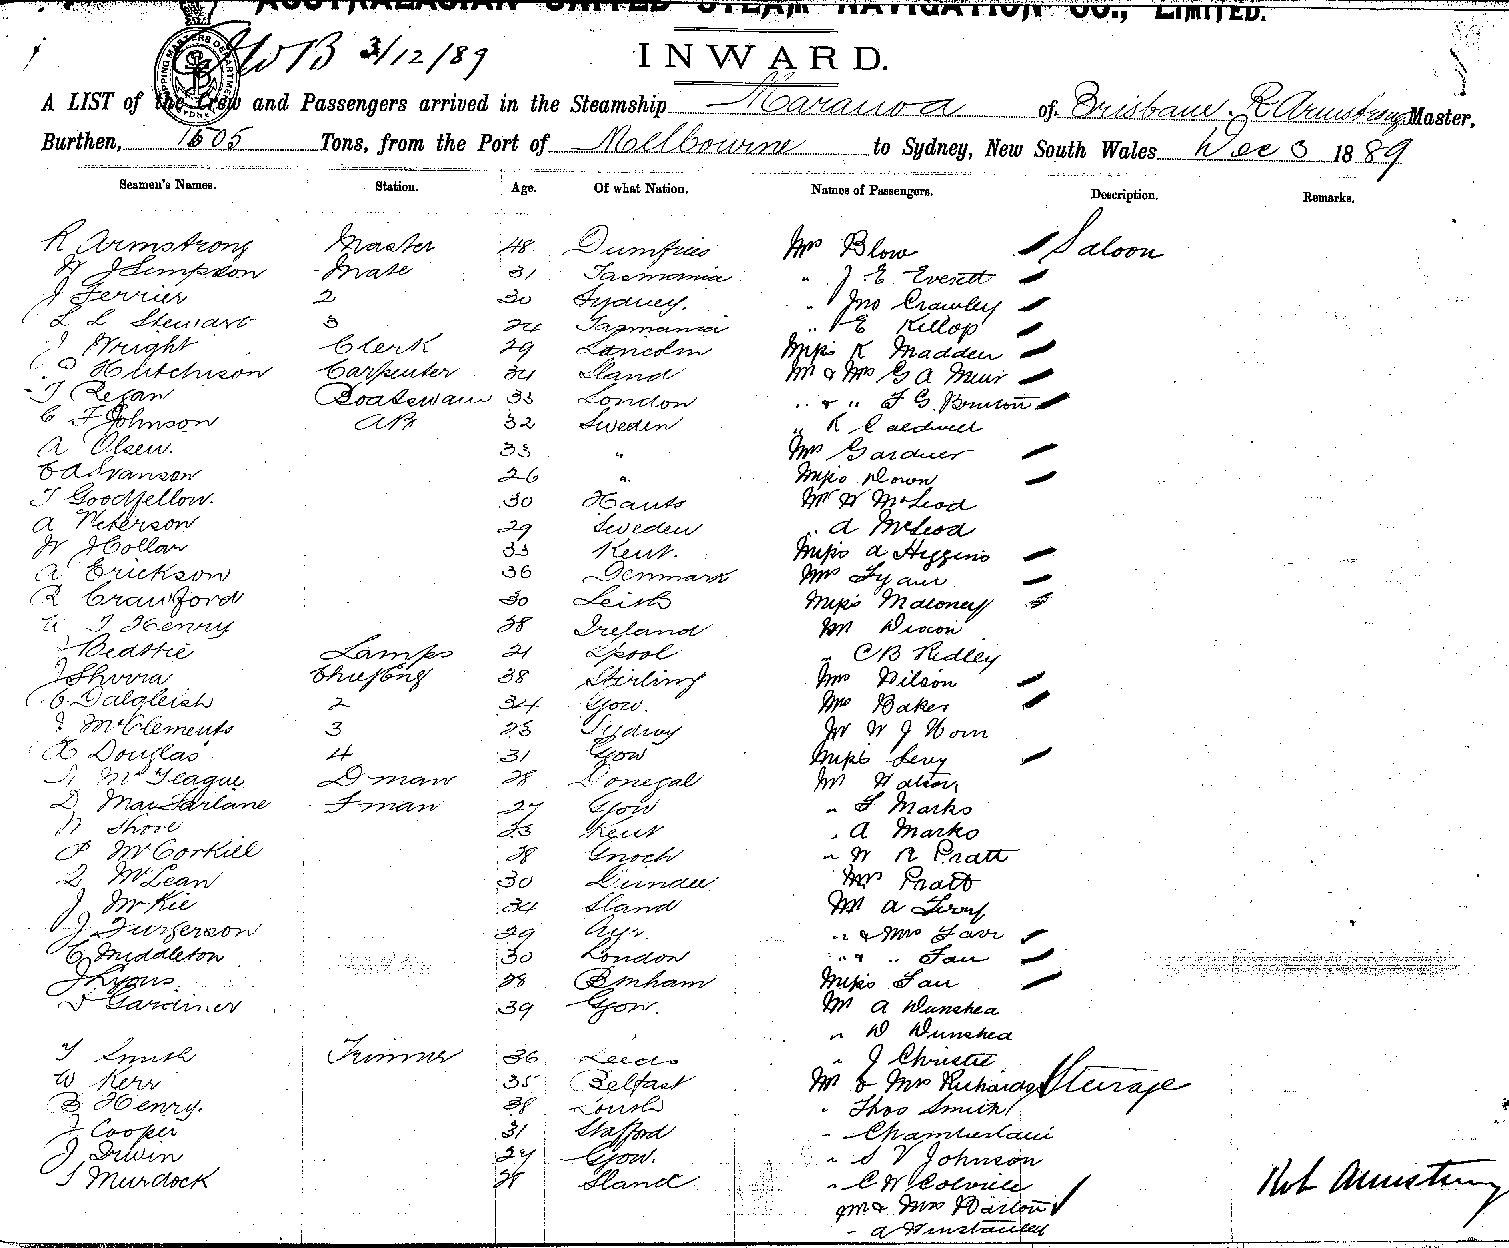 AUSTRALASIAN UNITED STEAM NAVIGATION CO., LIMITED.
3/12/89
INWARD.
A LIST of the Crew and Passengers arrived in the Steamship Maranoa of Brisbane. R Armstrong Master,
Burthen, 1505 Tons, from the Port of Melbourne to Sydney, New South Wales Dec 3 1889
Seamen's Names. Station. Age. Of what Nation. Names of Passengers. Description. Remarks.
R Armstrong Master 48 Dumfries Mrs Blow Saloon
W J Simpson Mate 31 Tasmania " J E Everett
J Ferrier 2 30 Sydney. " Jno Crawley
L L Stewart 3 24 Tasmania " E Killop
J Wright Clerk 29 Lincoln Miss K Madden
Hutchison Carpenter 34 Sland Mr & Mrs G A Muir
T Regan Boatswain 33 London " & " F G Bruton
C F Johnson AB 32 Sweden " K Caldwell
A Olsen. 33 " Mrs Gardner
C A Svanson 26 " Miss Down
T Goodfellow. 30 Hants Mr W McLeod
A Peterson 29 Sweden " A McLeod
W Hollow 33 Kent. Miss A Higgins
A Erickson 36 Denmark Mrs
R Crawford 30 Leith Miss Maloney
T Henry 38 Ireland Mr Dixon
Beattie Lamps 21 Lpool " C B Ridley
J Chief Eng 38 Stirling Mrs Wilson
C Dalgleish 2 34 Gow. Mrs Baker
J McClements 3 23 Sydney Mr W J Horn
A Douglas 4 31 Gow Miss Levy
McTeague D man 28 Donegal Mr
D MacFarlane F man 27 Gow " S Marks
Shore 33 Kent " A Marks
P McCorkill 28 Gnoch " W R Pratt
D McLean 30 Dundee Mrs Pratt
J McKie 34 Sland Mr A
J Furgerson 29 Ayr " & Mrs Farr
C Middleton 30 London " " " Farr
J Lyons 28 Bmham Miss Farr
D Gardiner 39 Gow. Mr A Dunshea
" D Dunshea
T Smith Trimmer 36 Leeds " J Christie
W Kerr 35 Belfast Mr & Mrs Richards Steerage
B Henry. 38 Louth " Thos Smith
J Cooper 31 Stafford " Chamberlain
J Irwin 27 Gow. " S V Johnson
S Murdock 28 Sland " C W Colville
Rob Armstrong
Mr & Mrs Barton
" A Winstanley